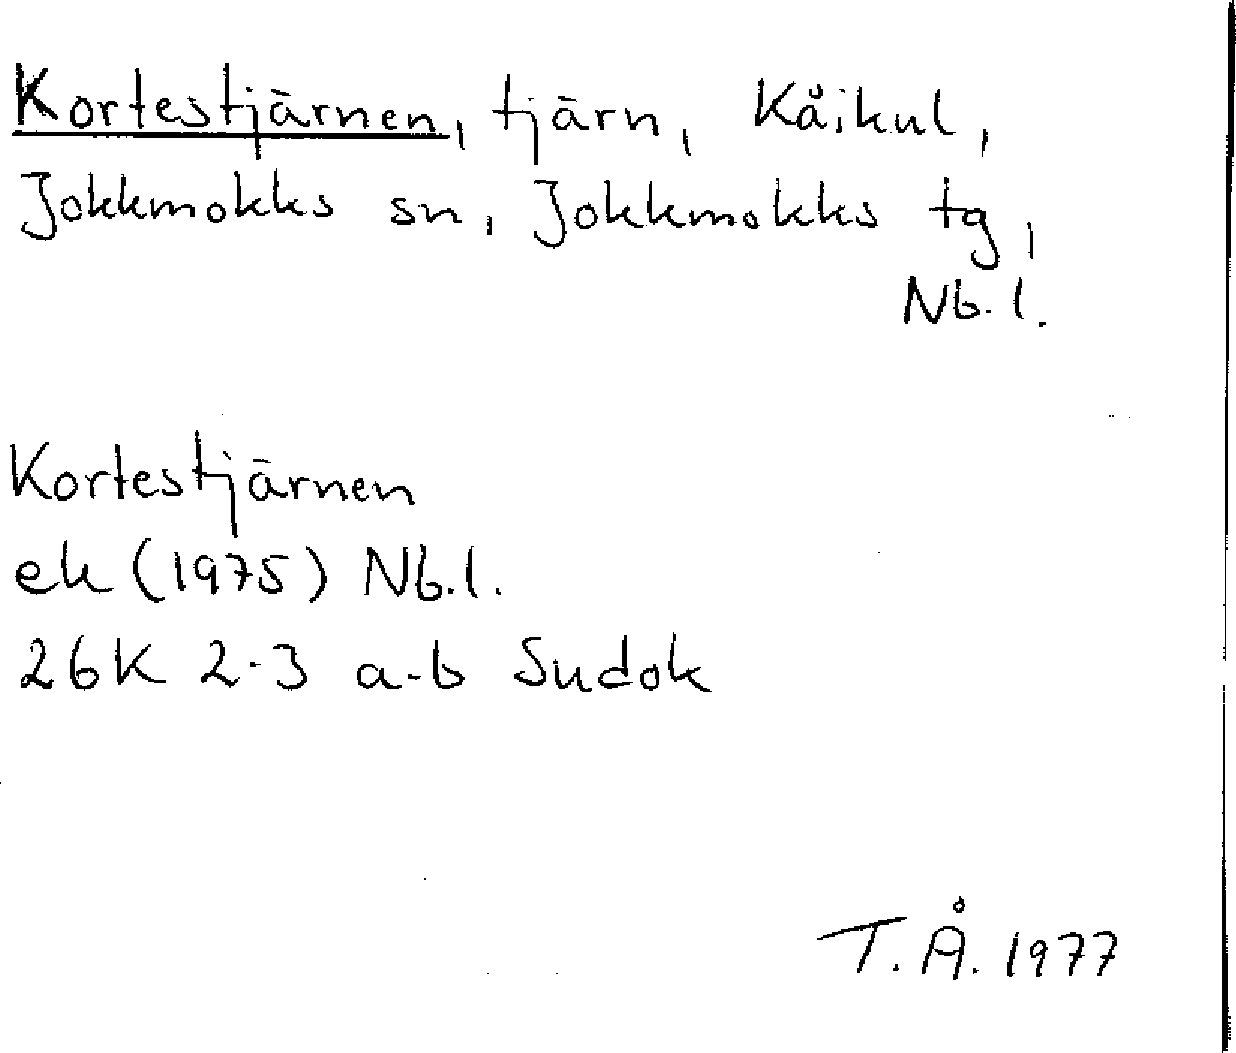 Kortestjärnen, tjärn, Kåikul,
Jokkmokks sn, Jokkmokks tg,
Nb.l.
Kortestjärnen
ek (1975) Nb.l.
26K 2-3 a-b Sudok
T.Å. 1977